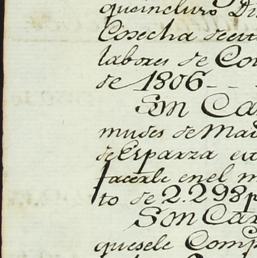 queincluso Di
Cosecha de
labores de Co
de 1806 - -
Son Ca
mudes de Ma
de Esparza
facerle en el m
to de 2.298 p
Son Car
quesele Comp